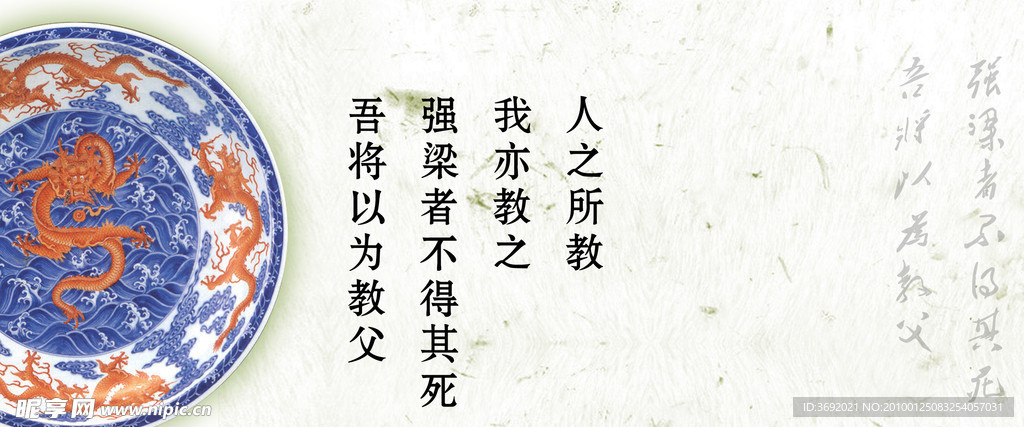 人之所教
我亦教之
强梁者不得其死
吾将以为教父
强梁者不得其死
吾将以为教父
昵享网 www.nipic.cn
ID:3692021 NO:20100125083254057031